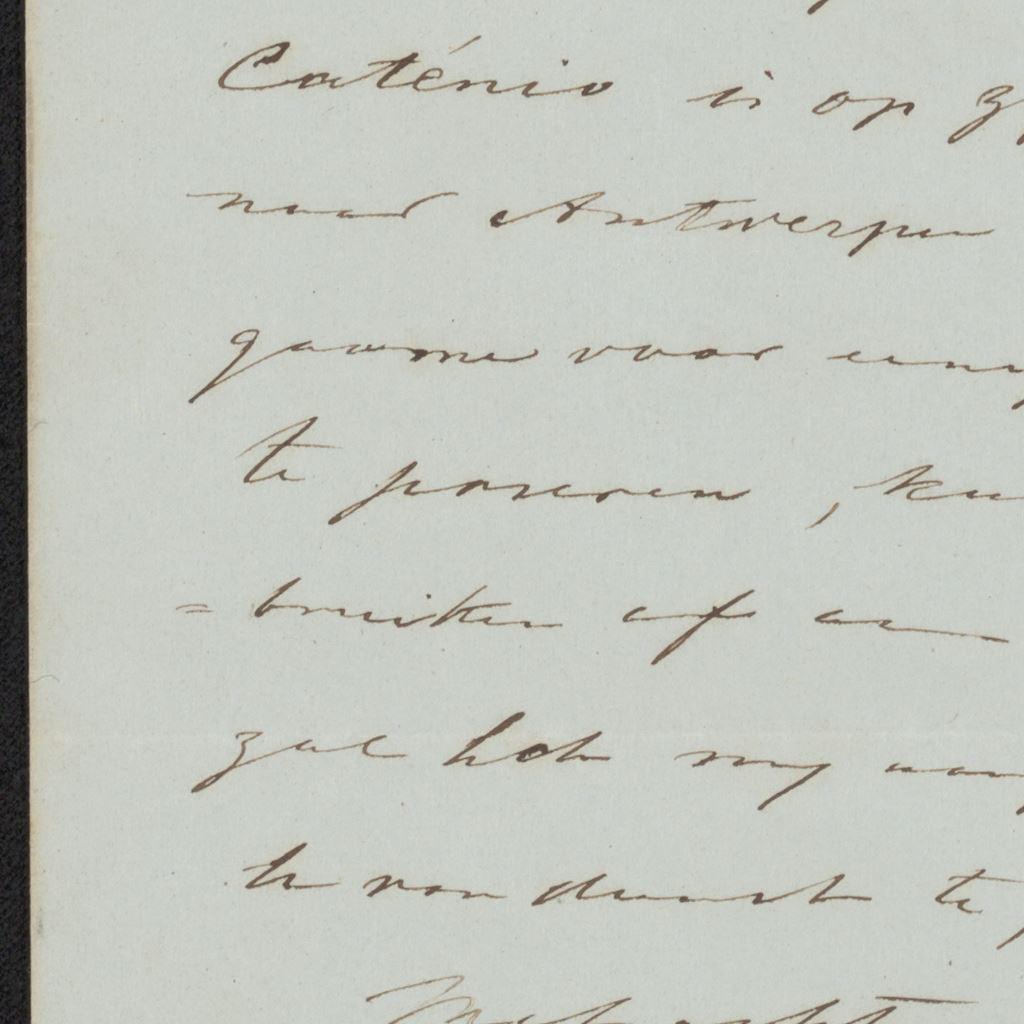 Caténio is op
naar Antwerpen
gaarne voor
te poseren,
= bruiken of
zal het mij
te van dienst te